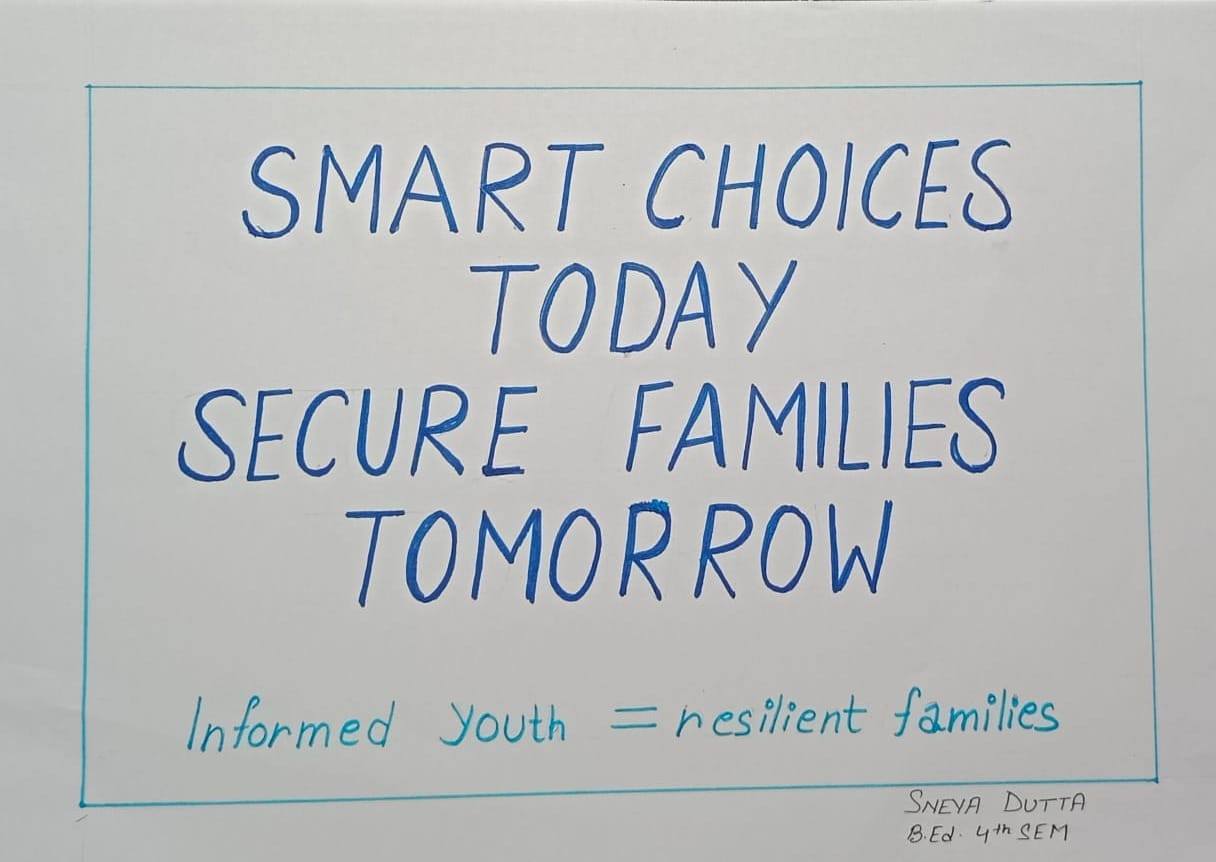 SMART CHOICES
TODAY
SECURE FAMILIES
TOMORROW
Informed youth = resilient families
SNEYA DUTTA
B.Ed. 4th SEM